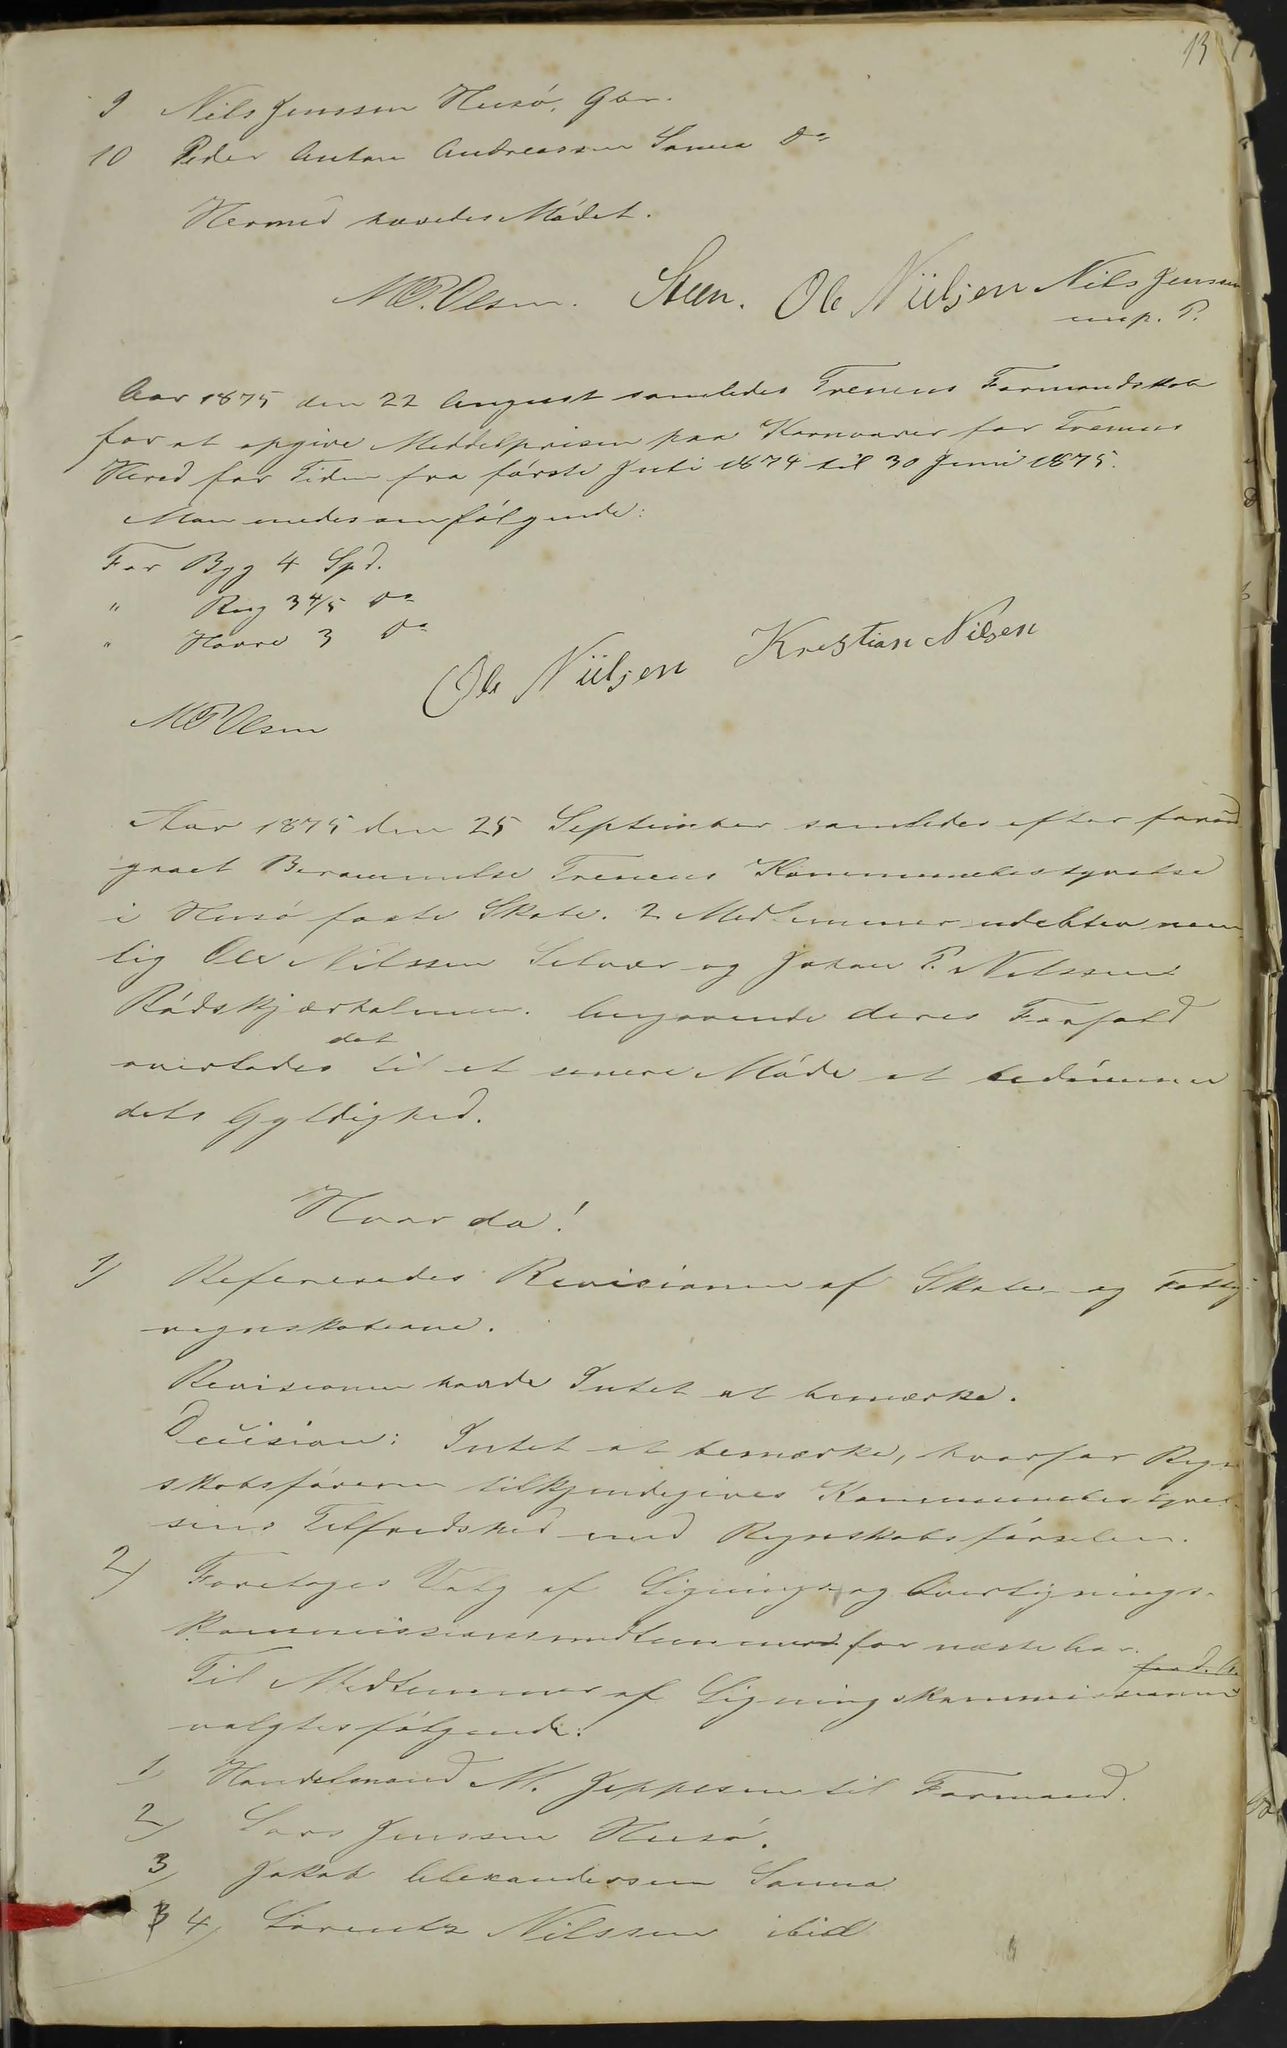 13
9 Nils Jenssen Husö, Gbr.
10 Peder Anton Andreassen Sanna Do
Hermed hævedes Mödet.
M P. Olsen. Steen. Ole Niilsen Nils Jenssen
m. p. P.
Aar 1875 den 22 August samledes Trænens Formandskab
for at opgive Middelprisen paa Kornvarer for Trænens
Herred for Tiden fra förste Juli 1874 til 30 Juni 1875.
Man enedes om fölgende:
For Byg 4 Spd.
" Rug 3 4/5 Do
" Havre 3 Do
Ole Niilsen Kristian Nilsen
M P Olsen
Aar 1875 den 25 September samledes efter forud
gaaet Berammelse Trænens Kommunebestyrelse
i Husö faste Skole. 2 Medlemmer udeblev nem
lig Ole Nilssen Selvær og Johan P. Nilssen
Rödskjærholmen. Angaaende deres Forfald
overlodes det til et senere Möde at bedömme
dets Gyldighed.
Hvor da!
1) Refereredes Revisionen af Skole- og Fattig-
regnskaberne.
Revisionen havde Intet at bemærke.
Decision: Intet at bemærke, hvorfor Regn
skabsföreren tilkjendegives Kommunebestyrel-
sens Tilfredshed med Regnskabsförselen.
2) Foretoges Valg af Lignings- og Overlignings-
kommissionsmedlemmer for næste Aar.
Til Medlemmer af Ligningskommissionen
valgtes fölgende:
1) Handelsmand M. Jeppesen til Formand.
2) Lars Jenssen Husö.
3) Jakob Alexandersen Sanna
4) Lorentz Nilssen ibid